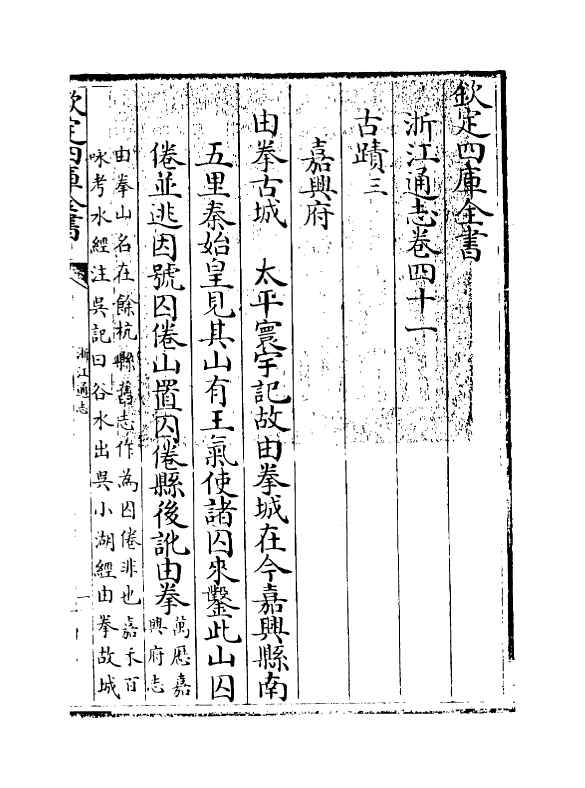 欽定四庫全書
浙江通志卷四十一
古蹟三
嘉興府
由拳古城　太平寰宇記故由拳城在今嘉興縣南
五里秦始皇見其山有王氣使諸囚來鑿此山囚
倦並逃因號囚倦山置囚倦縣後訛由拳萬厯嘉
興府志
由拳山名在餘杭縣舊志作為囚倦非也嘉禾百
咏考水經注吳記曰谷水出吳小湖經由拳故城
欽定四庫全書
浙江通志
一